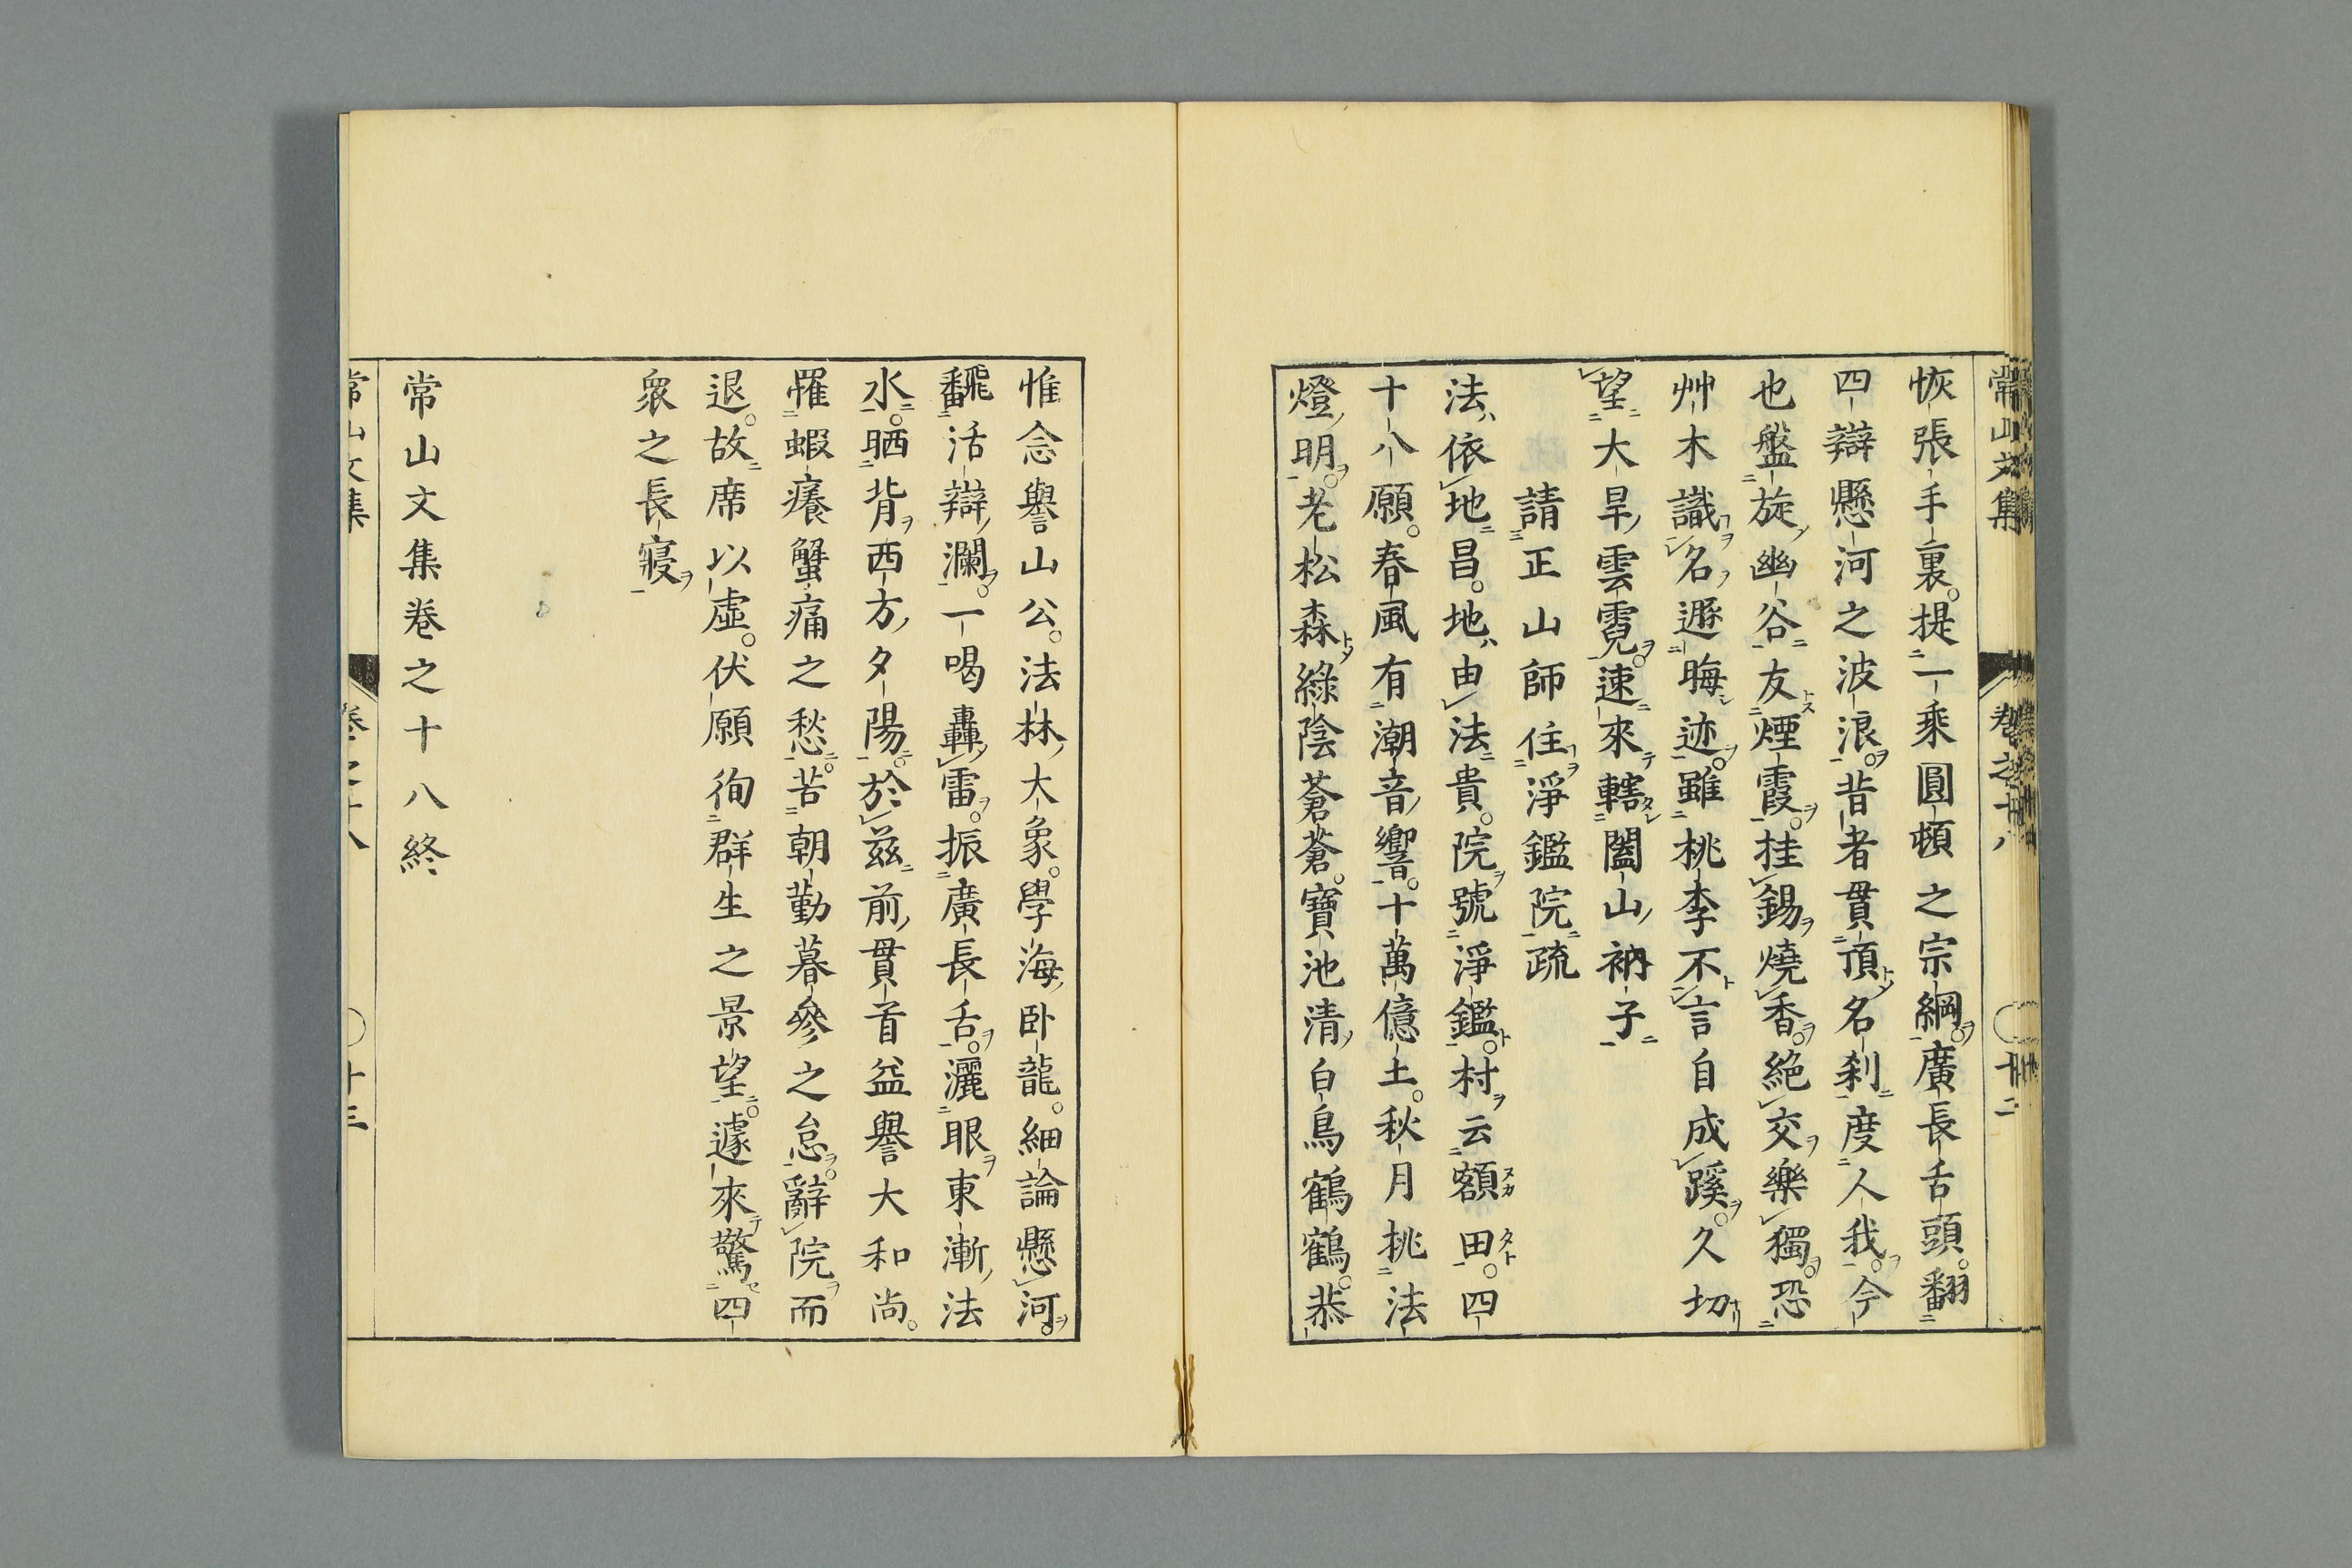 常山文集 卷之十八 〇十二
恢張手裏。提一乘圓頓之宗綱。廣長舌頭。翻
四辯懸河之波浪。昔者貫頂名刹度人我。今
也盤旋幽谷友煙霞。挂錫燒香。絶交樂獨。恐
艸木識名遯晦迹。雖桃李不言自成蹊。久切
望大旱雲霓。速來轄闔山衲子
請正山師住淨鑑院疏
法依地昌。地由法貴。院號淨鑑。村云額田。四
十八願。春風有潮音響。十萬億土。秋月挑法
燈明。老松森綠陰蒼蒼。寶池清白鳥鶴鶴。恭
惟念譽山公。法林大象。學海卧龍。細論懸河。
飜活辯瀾。一喝轟雷。振廣長舌。灑眼東漸法
水。晒背西方夕陽。於茲前貫首益譽大和尚。
罹蝦癢蟹痛之愁。苦朝勤暮參之怠。辭院而
退。故席以虛。伏願徇群生之景望。遽來驚四
衆之長寢
常山文集卷之十八終
常山文集 卷之十八 〇十三